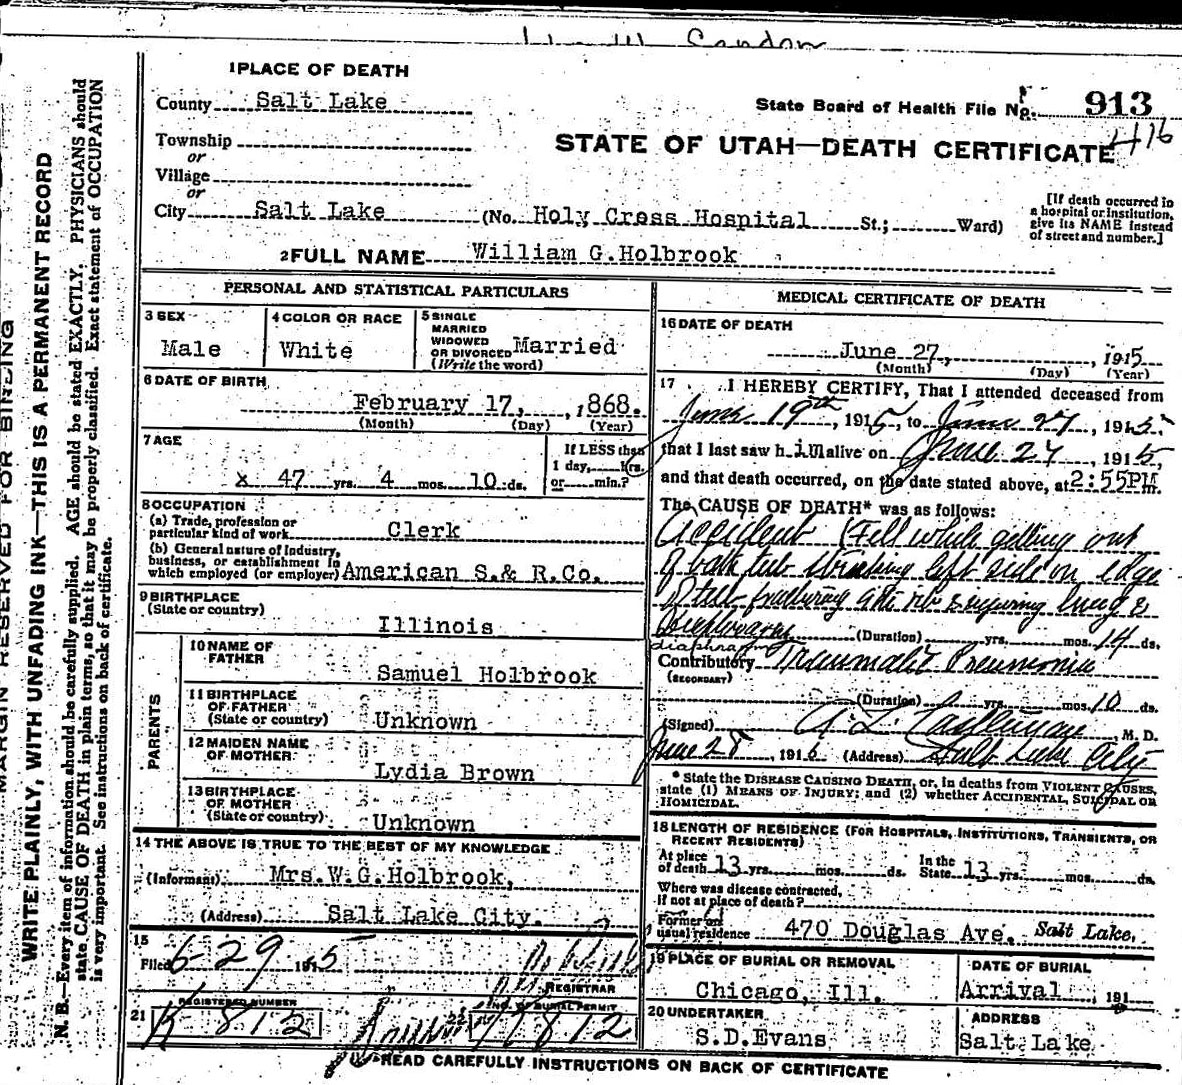 1 PLACE OF DEATH
County Salt Lake
State Board of Health File No. 913
416
Township
or
STATE OF UTAH—DEATH CERTIFICATE
Village
or
City Salt Lake (No. Holy Cross Hospital St.; Ward)
[If death occurred in a hospital or institution, give its NAME instead of street and number.]
2 FULL NAME William G. Holbrook
PERSONAL AND STATISTICAL PARTICULARS
3 SEX
Male
4 COLOR OR RACE
White
5 SINGLE
MARRIED
WIDOWED
OR DIVORCED Married
(Write the word)
6 DATE OF BIRTH
February 17, , 1868.
(Month) (Day) (Year)
7 AGE
x 47 yrs. 4 mos. 10 ds.
If LESS than
1 day, hrs.
or min.?
8 OCCUPATION
(a) Trade, profession or
particular kind of work Clerk
(b) General nature of Industry,
business, or establishment in
which employed (or employer) American S. & R. Co.
9 BIRTHPLACE
(State or country)
Illinois
PARENTS
10 NAME OF
FATHER
Samuel Holbrook
11 BIRTHPLACE
OF FATHER
(State or country) Unknown
12 MAIDEN NAME
OF MOTHER
Lydia Brown
13 BIRTHPLACE
OF MOTHER
(State or country) Unknown
14 THE ABOVE IS TRUE TO THE BEST OF MY KNOWLEDGE
(Informant) Mrs. W. G. Holbrook,
(Address) Salt Lake City.
15
Filed 6-29 1915
REGISTRAR
21 REGISTERED NUMBER
K 812
22 NO. OF BURIAL PERMIT
812
MEDICAL CERTIFICATE OF DEATH
16 DATE OF DEATH
June 27, , 1915
(Month) (Day) (Year)
17 I HEREBY CERTIFY, That I attended deceased from
June 19th 1915, to June 27, 1915
that I last saw him alive on June 27, 1915,
and that death occurred, on the date stated above, at 2:55 PM.
The CAUSE OF DEATH* was as follows:
Accident (Fell while getting out
of bath tub striking left side on edge
of tub fracturing 9th rib & injuring lung &
diaphragm (Duration) yrs. mos. 14 ds.
diaphragm
Contributory Traumatic Pneumonia
(SECONDARY)
(Duration) yrs. mos. 10 ds.
(Signed) M. D.
June 28, 1915 (Address) Salt Lake City
* State the DISEASE CAUSING DEATH, or, in deaths from VIOLENT CAUSES,
state (1) MEANS OF INJURY; and (2) whether ACCIDENTAL, SUICIDAL OR
HOMICIDAL.
18 LENGTH OF RESIDENCE (FOR HOSPITALS, INSTITUTIONS, TRANSIENTS, OR
RECENT RESIDENTS)
At place
of death 13 yrs. mos. ds.
In the
State 13 yrs. mos. ds.
Where was disease contracted,
if not at place of death?
Former or
usual residence 470 Douglas Ave. Salt Lake.
19 PLACE OF BURIAL OR REMOVAL
Chicago, Ill.
DATE OF BURIAL
Arrival , 191
20 UNDERTAKER
S. D. Evans
ADDRESS
Salt Lake
READ CAREFULLY INSTRUCTIONS ON BACK OF CERTIFICATE
MARGIN RESERVED FOR BINDING
WRITE PLAINLY, WITH UNFADING INK—THIS IS A PERMANENT RECORD
N. B.—Every item of information should be carefully supplied. AGE should be stated EXACTLY. PHYSICIANS should
state CAUSE OF DEATH in plain terms, so that it may be properly classified. Exact statement of OCCUPATION
is very important. See instructions on back of certificate.